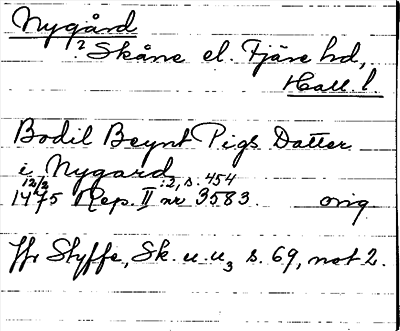 Nygård
? Skåne el. Fjäre hd,
Hall. l.
Bodil Beynt Pigs Datter
i Nygard
12/2 :2, s. 454
1475 Rep. II nr 3583. orig
Jfr Styffe, Sk. u. u3 s. 69, not 2.